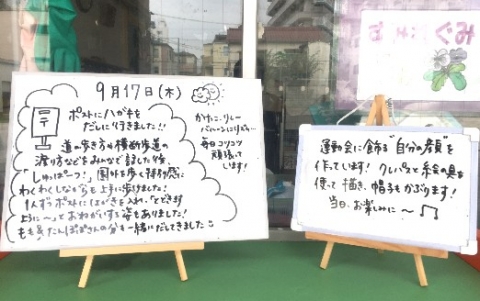 9月17日(木)
ポストにハガキを
だしに行きました!!
道の歩き方や横断歩道の
渡り方などをみんなで話した後、
「しゅっぱーつ!」園外を歩く特別感に
わくわくしながらも上手に歩けました!
1人ずつポストにはがきを入れ、「とどきます
ように〜」とおねがいする姿もありました!
もも組たんぽぽさんの分も一緒にだしてきました
かけっこ、リレー
バルーンに
毎日コツコツ
頑張って
います!
運動会に飾る"自分の顔"を
作っています! クレパスと絵の具を
使って描き、帽子もかぶります!
当日、お楽しみに〜